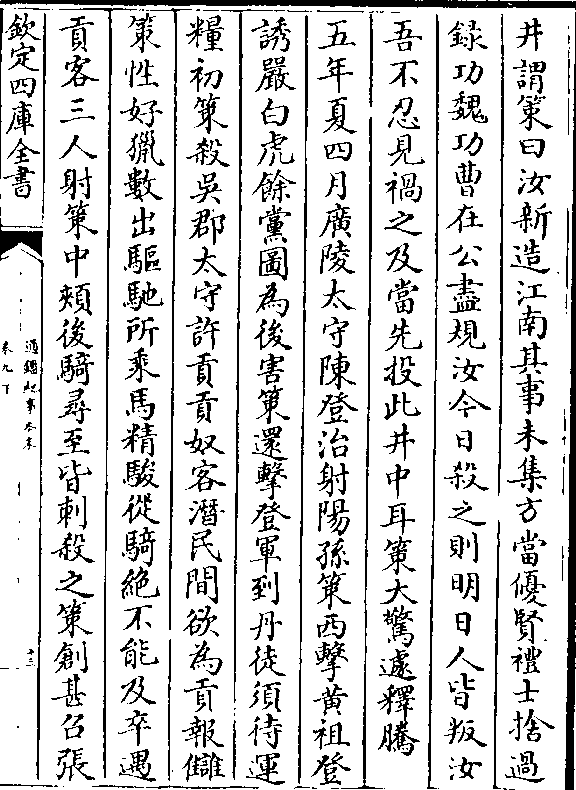 井謂策曰汝新造江南其事未集方當優賢禮士捨過
録功魏功曹在公盡規汝今日殺之則明日人皆叛汝
吾不忍見禍之及當先投此井中耳策大驚遽釋騰
五年夏四月廣陵太守陳登治射陽孫策西擊黄祖登
誘嚴白虎餘黨圖為後害策還擊登軍到丹徒須待運
糧初策殺吳郡太守許貢貢奴客潛民間欲為貢報讎
策性好獵數出驅馳所乘馬精駿從騎絶不能及卒遇
貢客三人射策中頰後騎尋至皆刺殺之策創甚召張
欽定四庫全書
通鑑紀事本末
卷九下
十三